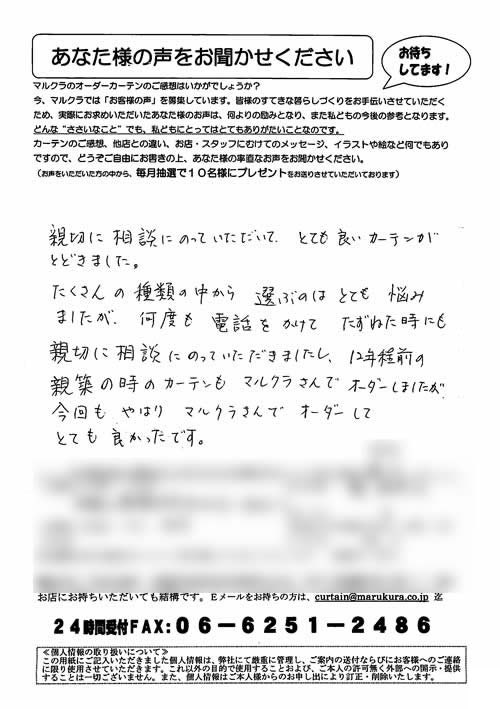 あなた様の声をお聞かせください
お待ち
してます！
マルクラのオーダーカーテンのご感想はいかがでしょうか？
今、マルクラでは「お客様の声」を募集しています。皆様のすてきな暮らしづくりをお手伝いさせていただく
ため、実際にお求めいただいたあなた様のお声は、何よりの励みとなり、また私どもの今後の参考となります。
どんな“ささいなこと”でも、私どもにとってはとてもありがたいことなのです。
カーテンのご感想、他店との違い、お店・スタッフにむけてのメッセージ、イラストや絵など何でもあり
ですので、どうぞご自由にお書きの上、あなた様の率直なお声をお聞かせください。
（お声をいただいた方の中から、毎月抽選で１０名様にプレゼントをお送りさせていただいております）
親切に相談にのっていただいて、とても良いカーテンが
とどきました。
たくさんの種類の中から選ぶのはとても悩み
ましたが、何度も電話をかけてたずねた時にも
親切に相談にのっていただきましたし、12年程前の
親築の時のカーテンもマルクラさんでオーダーしましたが
今回もやはりマルクラさんでオーダーして
とても良かったです。
お店にお持ちいただいても結構です。Ｅメールをお持ちの方は、curtain@marukura.co.jp 迄
２４時間受付ＦＡＸ：０６－６２５１－２４８６
≪個人情報の取り扱いについて≫
この用紙にご記入いただきました個人情報は、弊社にて厳重に管理し、ご案内の送付ならびにお客様へのご連絡
に限り使用させていただきます。これ以外の目的で使用することおよび、ご本人の許可無く外部への開示・提供
することは一切ございません。また、個人情報はご本人様からのお申し出により訂正・削除いたします。